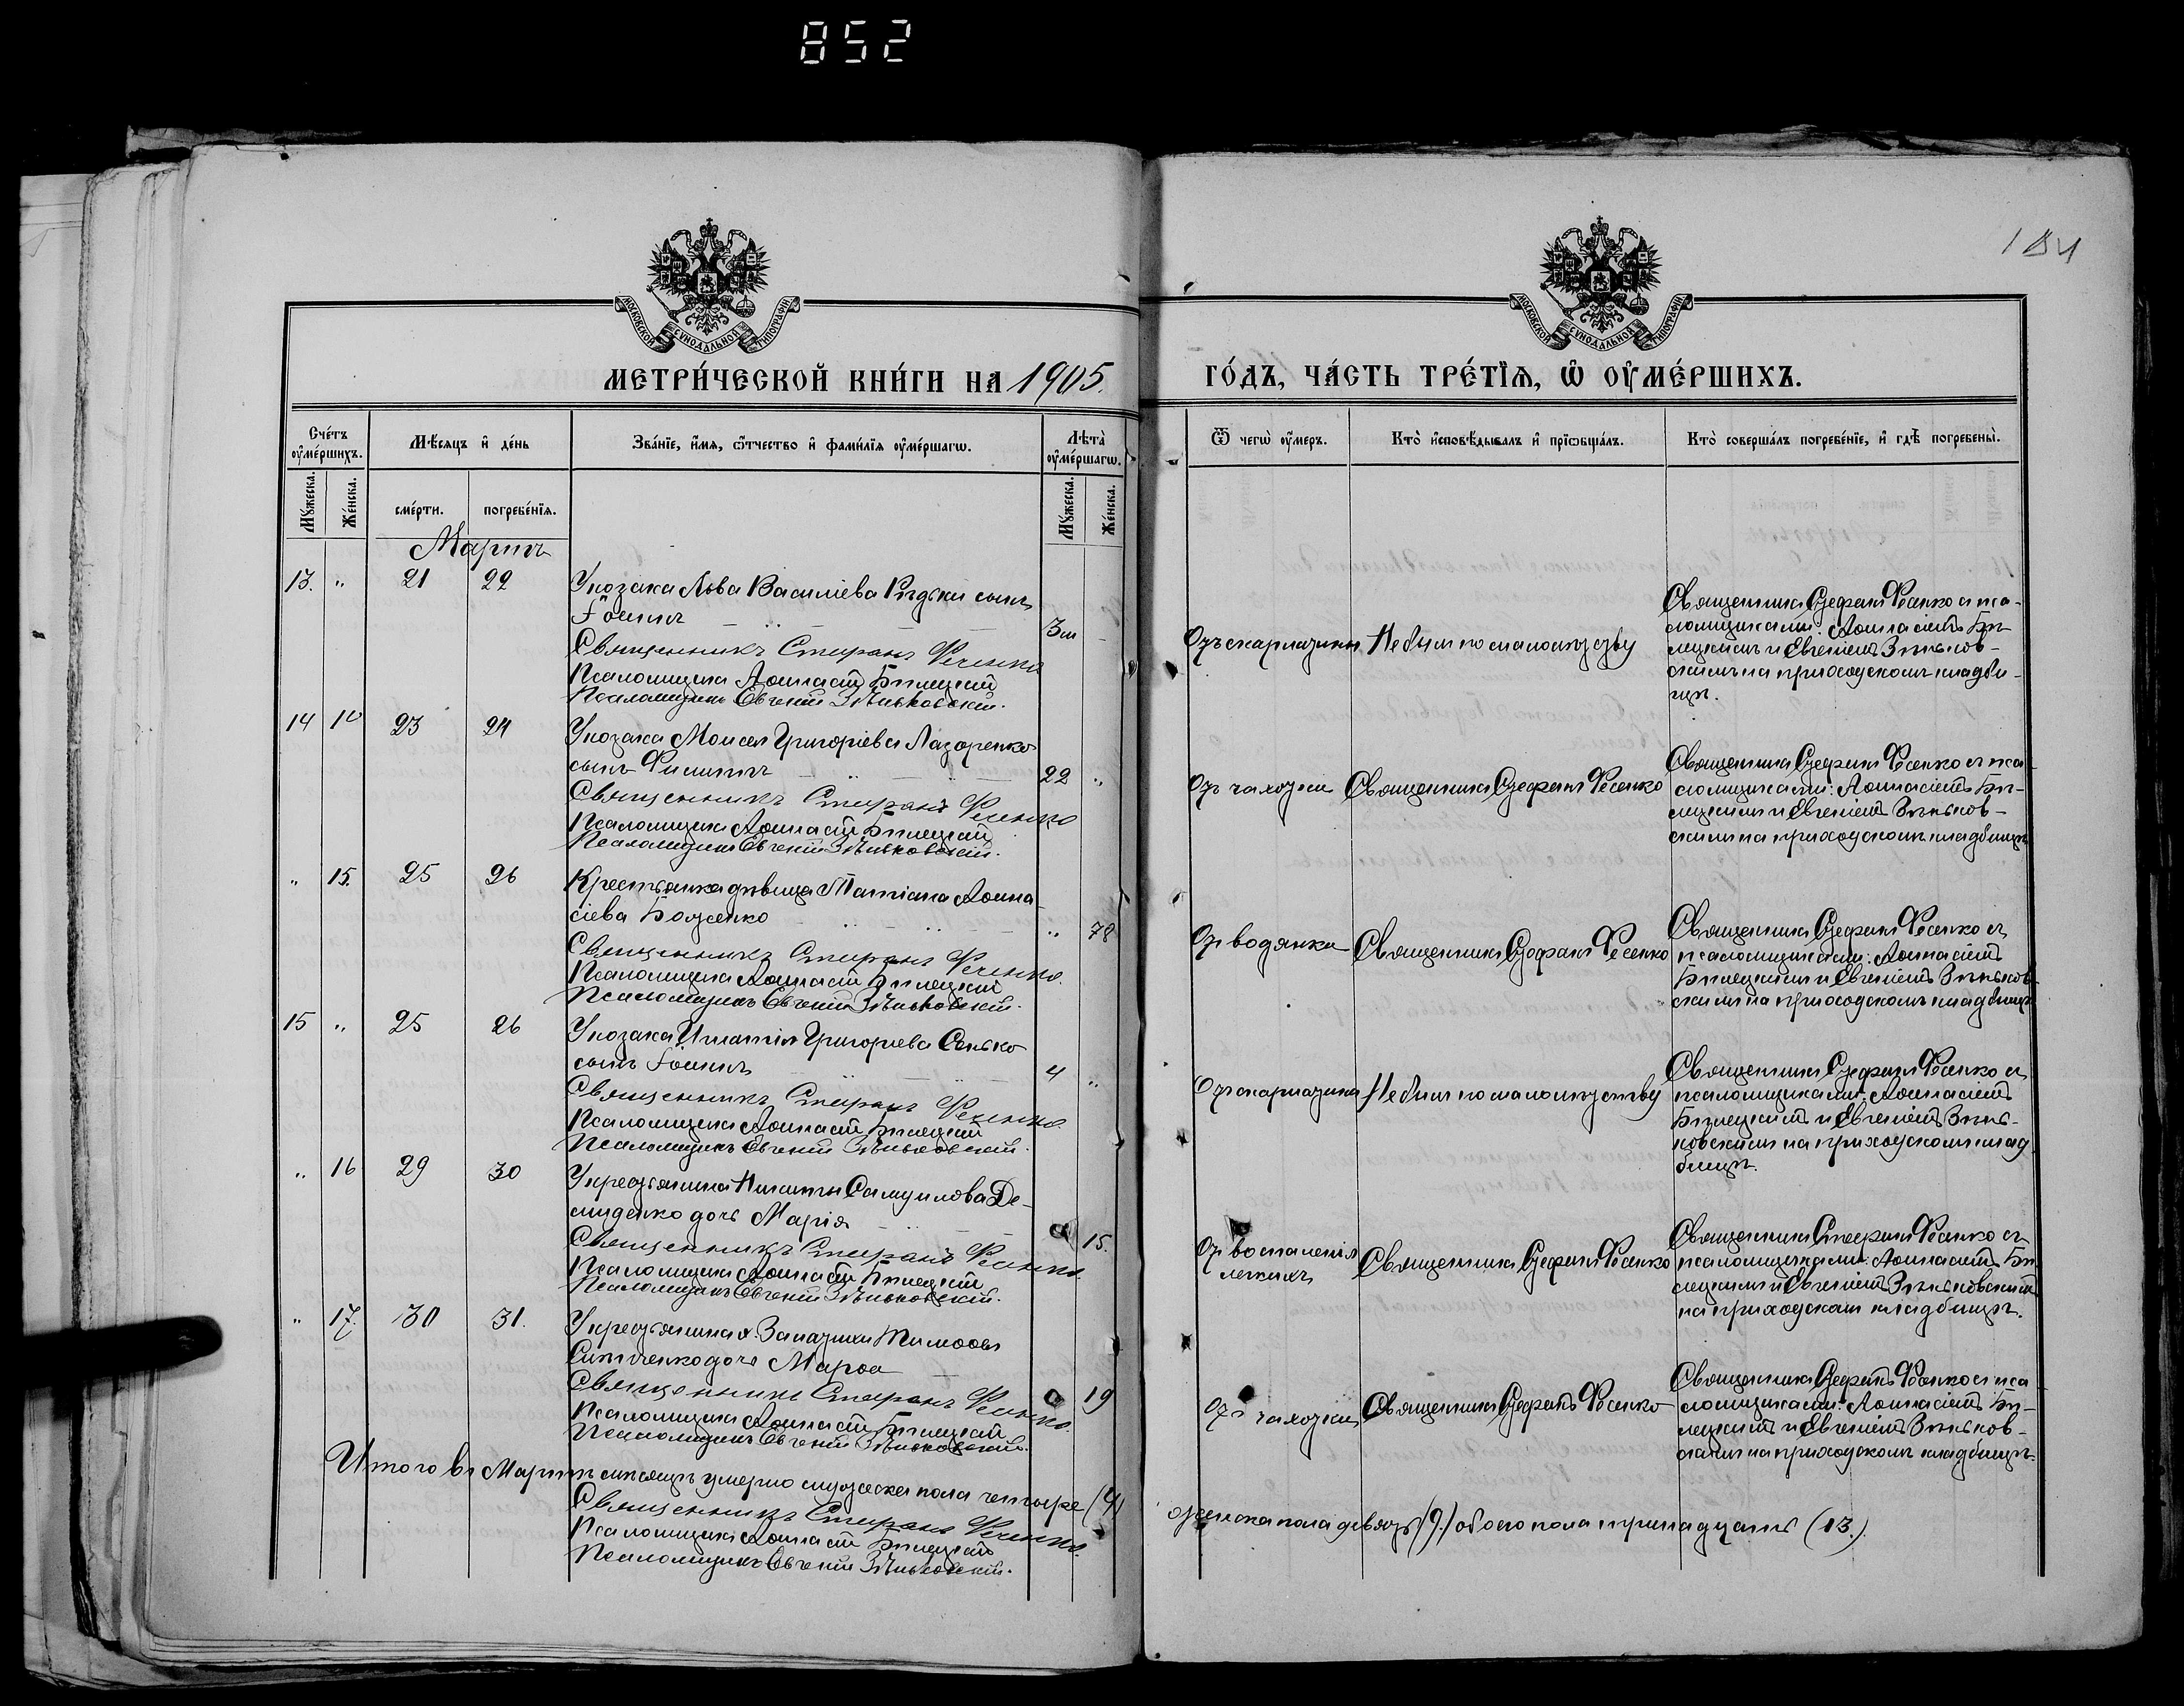 852
184
МОСКОВСКОЙ СѴНОДАЛЬНОЙ ТИПОГРАФІИ
МОСКОВСКОЙ СѴНОДАЛЬНОЙ ТИПОГРАФІИ
МЕТРИ́ЧЕСКОЙ КНИ́ГИ НА 1905.
ГО́ДЪ, ЧА́СТЬ ТРЕ́ТІѦ, Ѡ ОУ҆МЕ́РШИХЪ.
Сче́тъ оу҆ме́ршихъ.
Мѣ́сѧцъ и҆ де́нь
Зва́нїе, и҆́мѧ, ѻ҆́тчество и҆ фами́лїѧ оу҆ме́ршагѡ.
Лѣ́та оу҆ме́ршагѡ.
Ѿ чегѡ̀ оу҆́меръ.
Кто̀ и҆сповѣ́дывалъ и҆ прїѡбща́лъ.
Кто̀ соверша́лъ погребе́нїе, и҆ гдѣ̀ погребены̀.
Мꙋ́жеска. Же́нска.
сме́рти. погребе́нїѧ.
Мꙋ́жеска. Же́нска.
Мартъ
13. " 21 22 У козака Льва Василіева сынъ
Іоаннъ 3 м
Священникъ Стефанъ Фесенко
Псаломщикъ Аѳанасій Билецкій
Псаломщикъ Евгеній Зѣньковскій.
Отъ скарлатины Не былъ по малолѣтству
Священникъ Стефанъ Фесенко съ пса-
ломщиками: Аѳанасіемъ Би-
лецкимъ и Евгеніемъ Зѣньков-
скимъ на приходскомъ кладби-
щѣ.
14 23 24 У козака Моисея Григоріева Лазоренко
сынъ Филиппъ 22 "
Священникъ Стефанъ Фесенко
Псаломщикъ Аѳанасій Билецкій
Псаломщикъ Евгеній Зѣньковскій.
Отъ чахотки Священникъ Стефанъ Фесенко
Священникъ Стефанъ Фесенко съ пса-
ломщиками: Аѳанасіемъ Би-
лецкимъ и Евгеніемъ Зѣньков-
скимъ на приходскомъ кладбищѣ
" 15. 25 26 Крестьянка дѣвица Татіана Аѳана-
сіева Боженко " 78
Священникъ Стефанъ Фесенко.
Псаломщикъ Аѳанасій Билецкій
Псаломщикъ Евгеній Зѣньковскій.
От водянки Священникъ Стефанъ Фесенко
Священникъ Стефанъ Фесенко съ
псаломщиками: Аѳанасіемъ
Билецкимъ и Евгеніемъ Зѣньков-
скимъ на приходскомъ кладбищѣ
15 " 25 26 У козака Игнатія Григорьева Сенько
сынъ Іоаннъ 4 "
Священникъ Стефанъ Фесенко.
Псаломщикъ Аѳанасій Билецкій
Псаломщикъ Евгеній Зѣньковскій.
Отъ скарлатины Не былъ по малолѣтству
Священникъ Стефанъ Фесенко съ
псаломщиками: Аѳанасіемъ
Билецкимъ и Евгеніемъ Зѣнь-
ковскимъ на приходскомъ клад
бищѣ.
" 16 29 30 У крестьянина Никиты Самуилова Де-
миденко дочь Марія 15.
Священникъ Стефанъ Фесенко.
Псаломщикъ Аѳанасій Билецкій
Псаломщикъ Евгеній Зѣньковскій.
От воспаленія
легкихъ Священникъ Стефанъ Фесенко
Священникъ Стефанъ Фесенко съ
псаломщиками: Аѳанасіемъ Би
лецкимъ и Евгеніемъ Зѣньковскимъ
на приходскомъ кладбищѣ.
" 17. 30 31. У крестьянина
дочь Марѳа 19
Священникъ Стефанъ Фесенко.
Псаломщикъ Аѳанасій Билецкій
Псаломщикъ Евгеній Зѣньковскій.
Отъ чахотки Священникъ Стефанъ Фесенко
Священникъ Стефанъ Фесенко съ пса
ломщиками: Аѳанасіемъ Би-
лецкимъ и Евгеніемъ Зѣньков-
скимъ на приходскомъ кладбищѣ.
Итого въ Мартѣ мѣсяцѣ умерло мужеска пола четыре (4)
женска пола девять (9.) обоего пола тринадцать (13.).
Священникъ Стефанъ Фесенко.
Псаломщикъ Аѳанасій Билецкій
Псаломщикъ Евгеній Зѣньковскій.